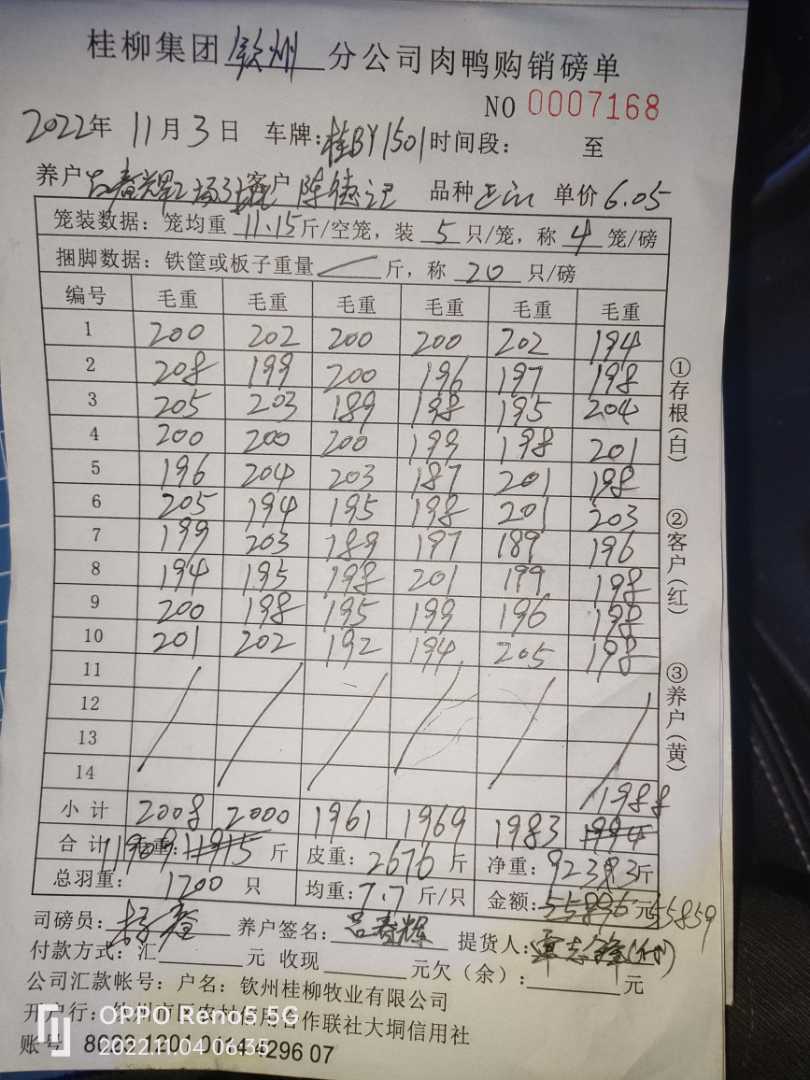 桂柳集团 钦州 分公司肉鸭购销磅单
NO 0007168
2022年 11月3日 车牌:桂BY1501 时间段: 至
养户 吕春辉2场3栋 客户 陈德记 品种 单价 6.05
笼装数据:笼均重 11.15 斤/空笼,装 5 只/笼,称 4 笼/磅
捆脚数据:铁筐或板子重量 斤,称 20 只/磅
编号 毛重 毛重 毛重 毛重 毛重 毛重
1 200 202 200 200 202 194
2 208 199 200 196 197 198
3 205 203 189 198 195 204
4 200 200 200 199 198 201
5 196 204 203 187 201 198
6 205 194 195 198 201 203
7 199 203 189 197 189 196
8 194 195 198 201 199 198
9 200 198 195 199 196 198
10 201 202 192 194 205 198
11
12
13
14
1988
小计 2008 2000 1961 1969 1983 1994
合计 11909 11915 斤 皮重: 2676 斤 净重: 斤
总羽重: 1200 只 均重: 7.7 斤/只 金额: 55896 元 55859
司磅员: 养户签名: 吕春辉 提货人:
付款方式:汇 元 收现 元欠(余): 元
公司汇款帐号:户名:钦州桂柳牧业有限公司
开户行:钦州市区农村信用合作联社大垌信用社
账号 8023 1201 0014 4296 07
①存根(白)
②客户(红)
③养户(黄)
OPPO Reno5 5G
2022.11.04 06:35